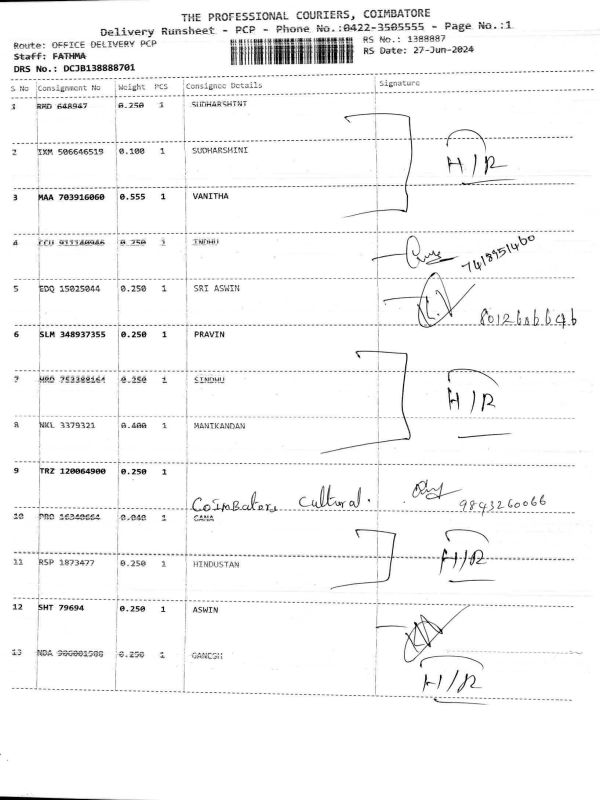 THE PROFESSIONAL COURIERS, COIMBATORE
Delivery Runsheet - PCP - Phone No.:0422-3505555 - Page No.:1
Route: OFFICE DELIVERY PCP RS No.: 1388887
Staff: FATHMA RS Date: 27-Jun-2024
DRS No.: DCJB138888701
S No Consignment No Weight PCS Consignee Details Signature
1 RMD 648947 0.250 1 SUDHARSHINI
2 IXM 506646519 0.100 1 SUDHARSHINI H/R
3 MAA 703916060 0.555 1 VANITHA
4 CCU 0.250 1 INDHU 7418951460
5 EDQ 15025044 0.250 1 SRI ASWIN 8012606646
6 SLM 348937355 0.250 1 PRAVIN
7 MRD 753388164 0.250 1 SINDHU H/R
8 NKL 3379321 0.400 1 MANIKANDAN
9 TRZ 120064900 0.250 1
Coimbatore Cultural. 9843260066
10 PRO 16340664 0.040 1 GANA
11 RSP 1873477 0.250 1 HINDUSTAN H/R
12 SHT 79694 0.250 1 ASWIN
13 NDA 0.250 1 GANESH
H/R